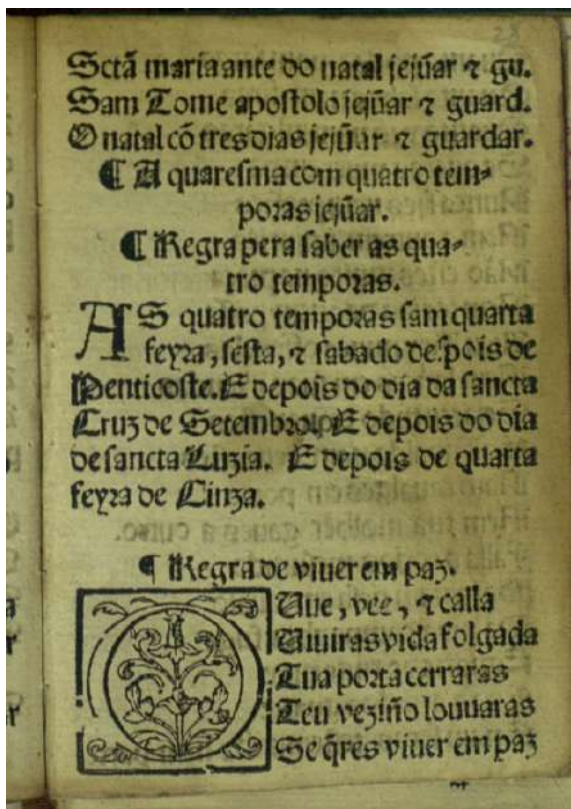 28
Sctã maria ante do natal jejũar ⁊ gu.
Sam Tome apostolo jejũar ⁊ guard.
O natal cõ tres dias jejũar ⁊ guardar.
¶ A quaresma com quatro tem-
poras jejũar.
¶ Regra pera saber as qua-
tro temporas.
AS quatro temporas sam quarta
feyra, sesta, ⁊ sabado despois de
Penticoste. E depois do dia da sancta
Cruz de Setembro. E depois do dia
de sancta Luzia. E depois de quarta
feyra de Cinza.
¶ Regra de viuer em paz.
OUue, vee, ⁊ calla
Uiuiras vida folgada
Tua porta cerraras
Teu veziño louuaras
Se q̃res viuer em paz